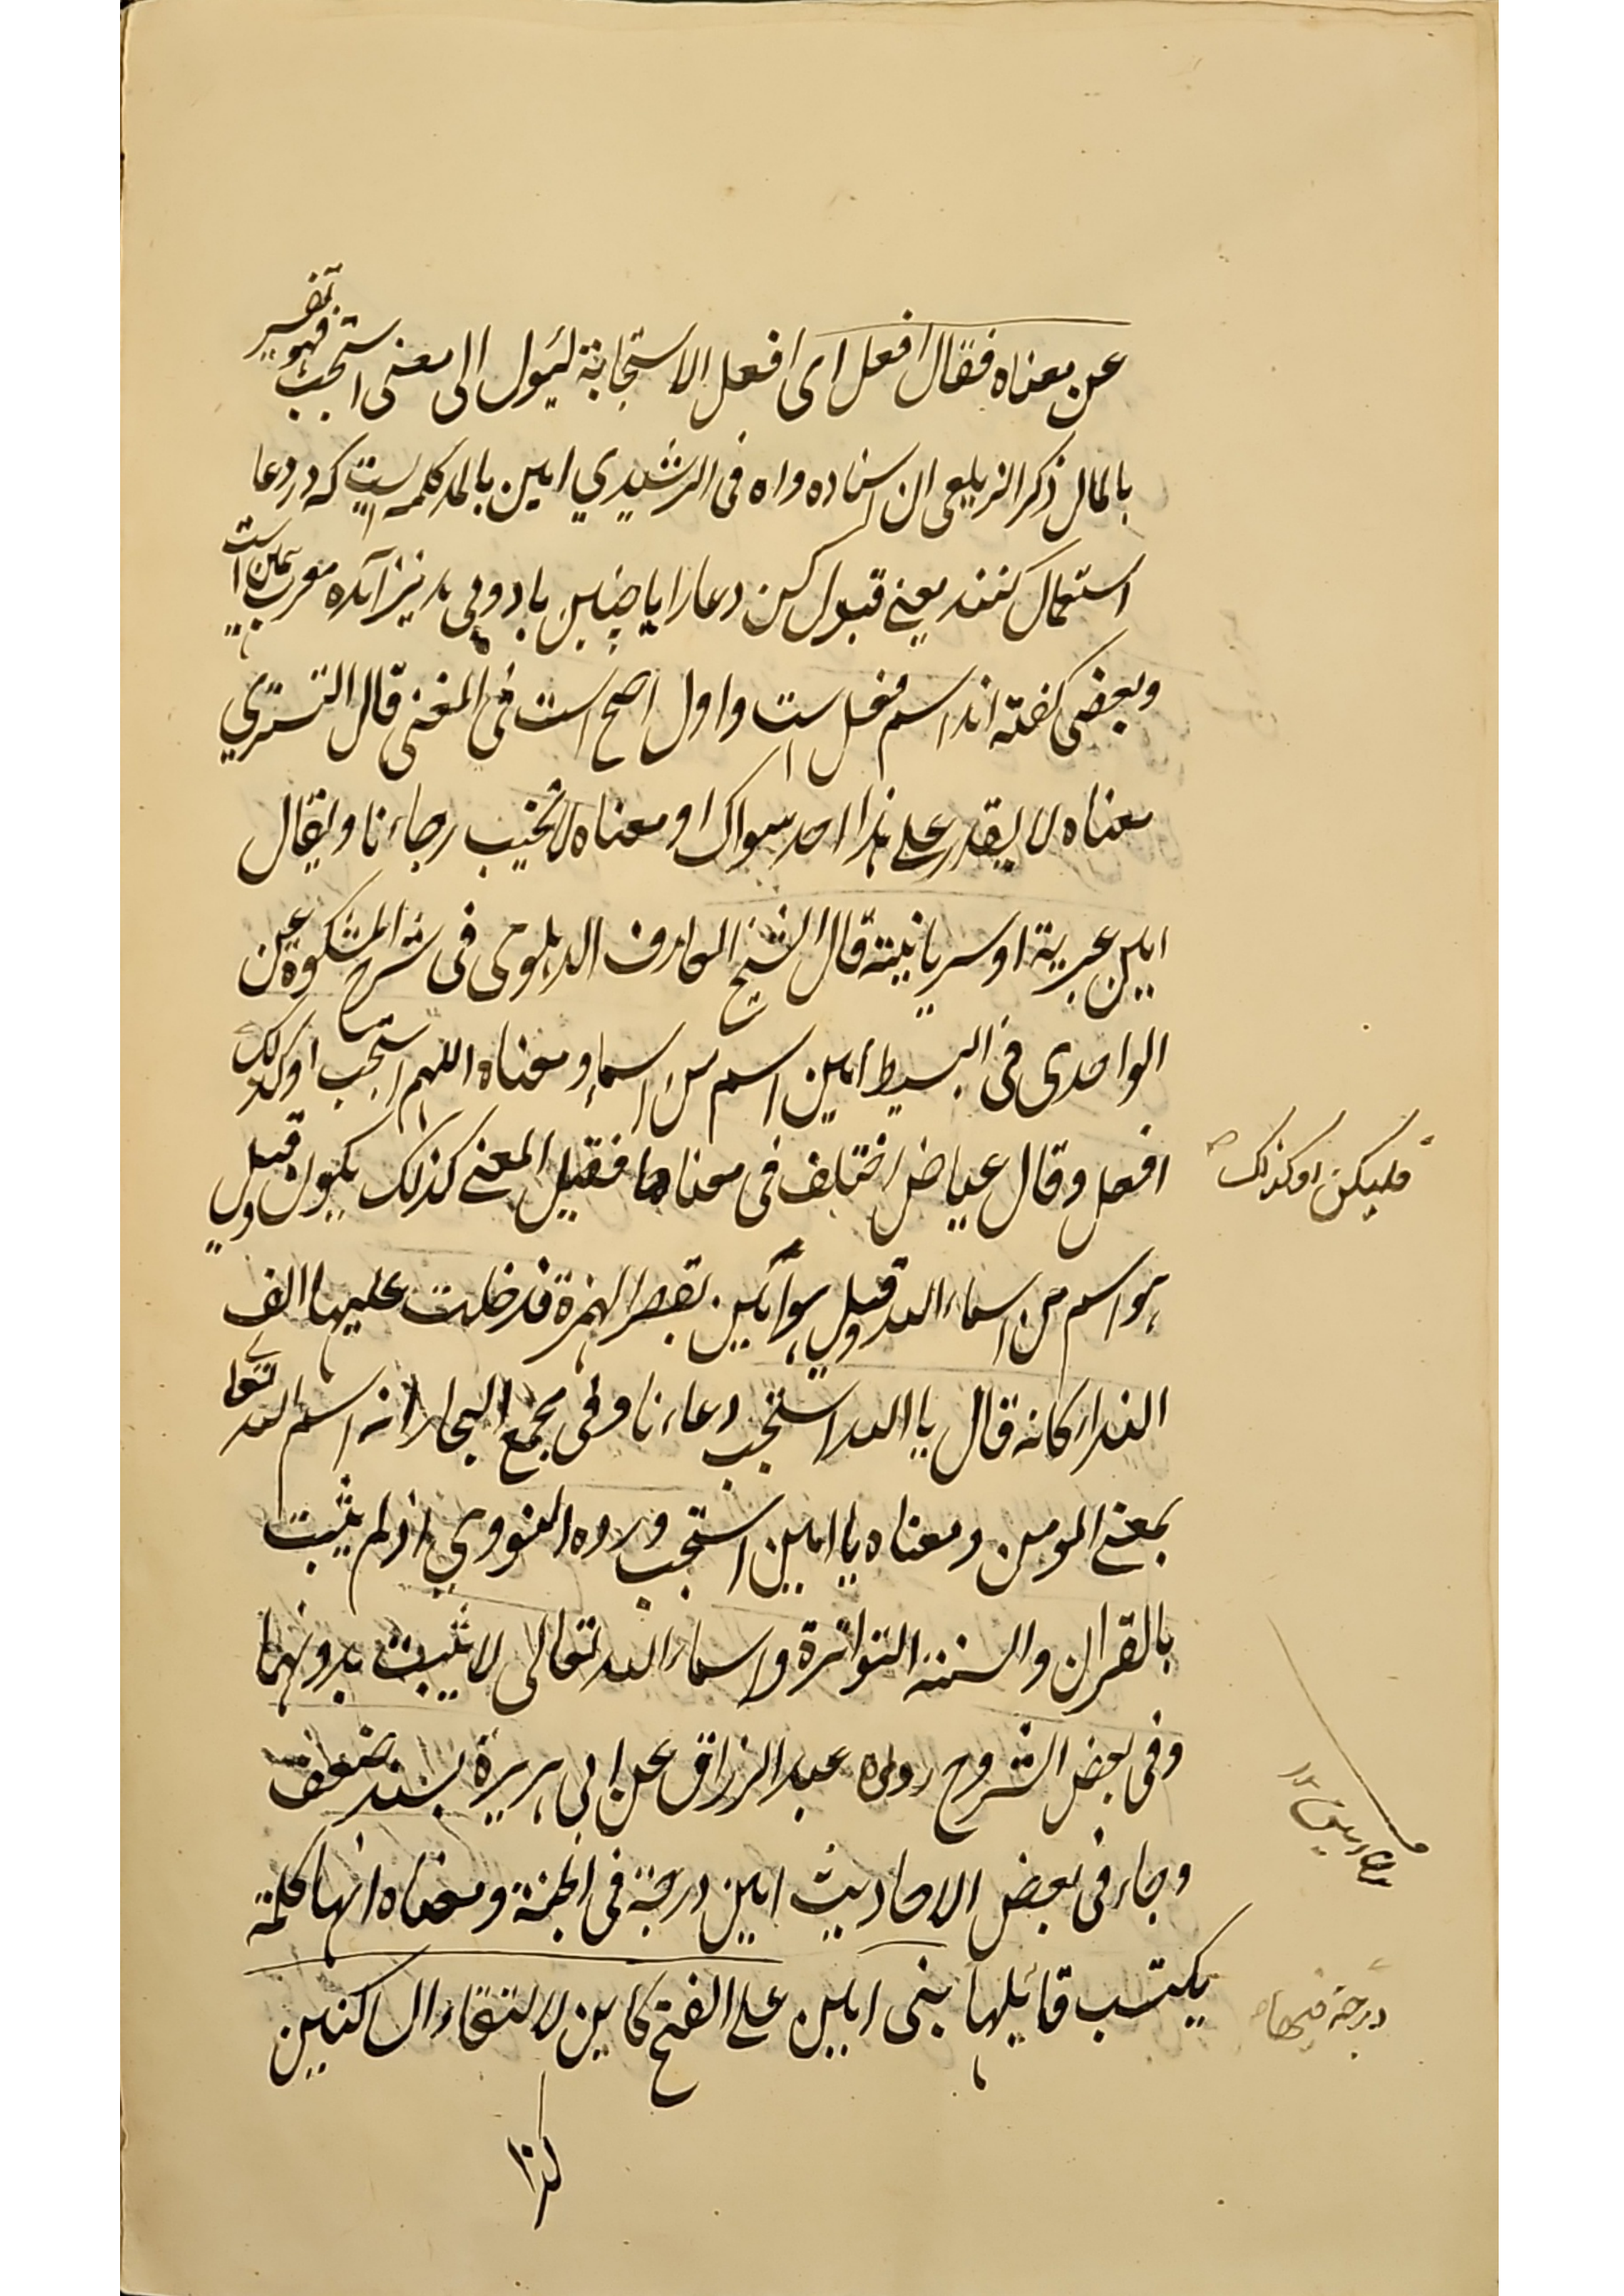 عن معناه فقال افعل اى افعل الاستجابة ليئول الى معنى استجب فهو تفسير
بالمال ذكر الزيلعى ان اسناده واه فى الرشيدي امين بالمد كلمه ايست كه در دعا
استعمال كنند يعنے قبول كن دعا را يا چنين باد وبى مد نيز آمده معرب همين است
وبعضى كفته اند اسم فعل است واول اصح است فى المغنى قال التسترى
معناه لا يقدر على هذا احد سواك او معناه لا تخيب رجاءنا ويقال
امين عبرية او سريانية قال الشيخ العارف الدهلوى فى شرح المشكوة عن
الواحدى فى البسيط امين اسم من اسماء ومعناه اللهم استجب او كذلك
افعل وقال عياض اختلف فى معناها فقيل المعنے كذلك يكون وقيل
هو اسم من اسماء الله وقيل هو امين بقصر الهمزة فدخلت عليها الف
النداء كانه قال يا الله استجب دعاءنا وفى مجمع البحار انه اسم لله تعا
بمعنے المومن ومعناه يا امين استجب ورده النووي اذ لم يثبت
بالقران والسنة المتواترة واسماء الله تعالى لا تثبت بدونهما
وفى بعض الشروح رواه عبد الرزاق عن ابى هريرة بسند ضعف
وجاء فى بعض الاحاديث امين درجة فى الجنة ومعناه انها كلمة
يكتسب قائيلها بنى امين على الفتح كاين لالتقاء الساكنين
كذا
فليكن او كذلك
درجة فيها